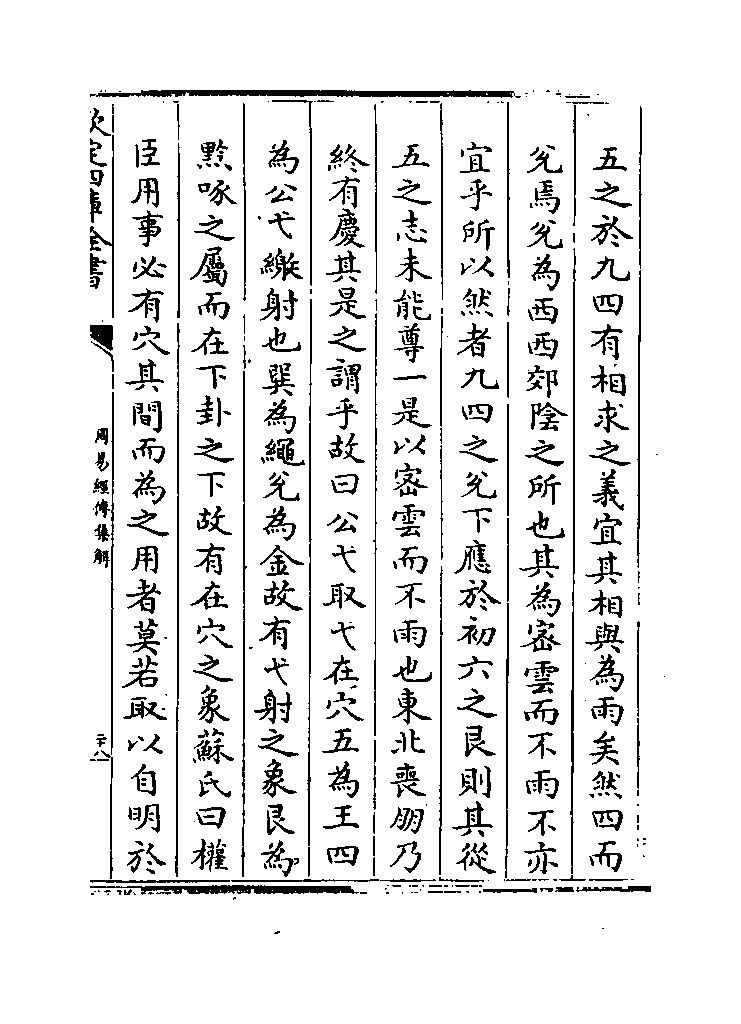 五之於九四有相求之義宜其相與為雨矣然四而
兊焉兊為西西郊陰之所也其為宻雲而不雨不亦
宜乎所以然者九四之兊下應於初六之艮則其從
五之志未能尊一是以宻雲而不雨也東北喪朋乃
終有慶其是之謂乎故曰公弋取弋在穴五為王四
為公弋繳射也巽為繩兊為金故有弋射之象艮為
黔喙之屬而在下卦之下故有在穴之象蘇氏曰權
臣用事必有穴其間而為之用者莫若取以自明於
欽定四庫全書
周易經傳集解
二十八